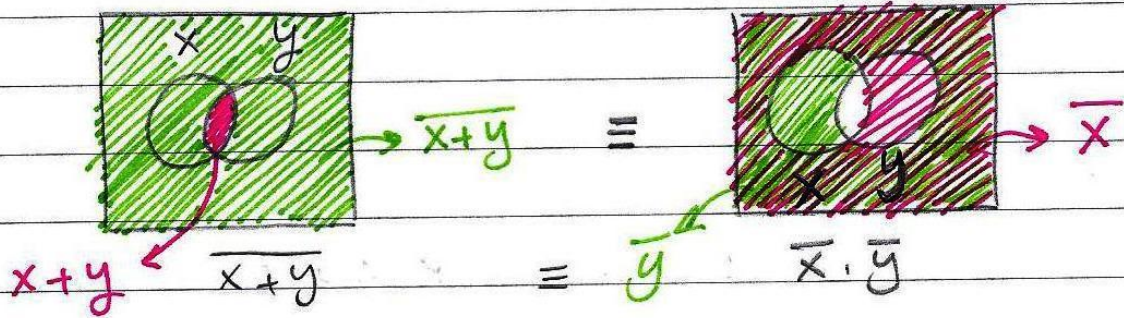 x y
x̅+̅y̅ ≡ x̅
x y
x+y x̅+̅y̅ ≡ y̅ x̅ . y̅